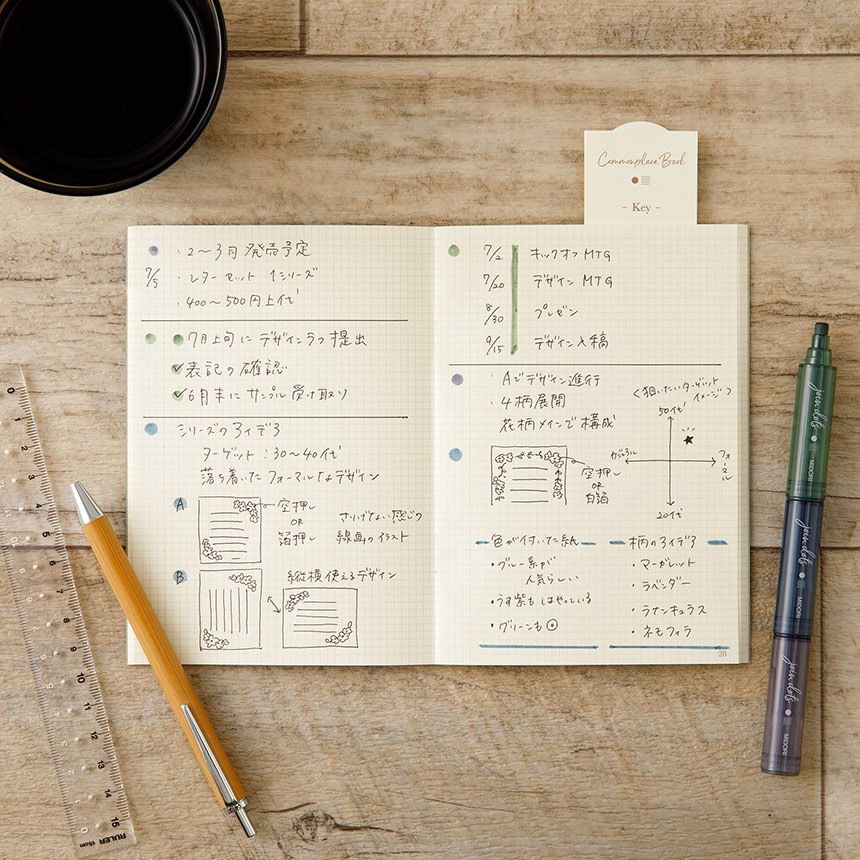 Commonplace Book
- Key -
・2〜3月 発売予定
7/5 ・レターセット 1シリーズ
・400〜500円上代
7月上旬に デザインラフ 提出
表記の確認
6月末に サンプル 受け取り
シリーズのアイデア
ターゲット:30〜40代
落ち着いた フォーマルなデザイン
A
空押し
OR
箔押し
さりげない感じの
線画のイラスト
B
縦横使えるデザイン
7/2 キックオフ MTG
7/20 デザイン MTG
8/30 プレゼン
9/15 デザイン入稿
・Aでデザイン進行
・4柄展開
花柄メインで構成
<狙いたいターゲット
イメージ>
50代
カジュアル
フォーマル
20代
空押し
OR
白箔
色が付いた紙
・ブルー系が
人気らしい
・うす紫もはやっている
・グリーンも
柄のアイデア
・マーガレット
・ラベンダー
・ラナンキュラス
・ネモフィラ
28
0
1
2
3
4
5
6
7
8
9
10
11
12
13
14
15
RULER 15cm
MIDORI
MIDORI
MIDORI